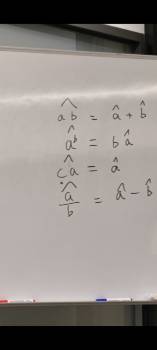 \widehat{ab} = \hat{a} + \hat{b}
\hat{a^b} = b\hat{a}
\hat{ca} = \hat{a}
\widehat{\frac{a}{b}} = \hat{a} - \hat{b}